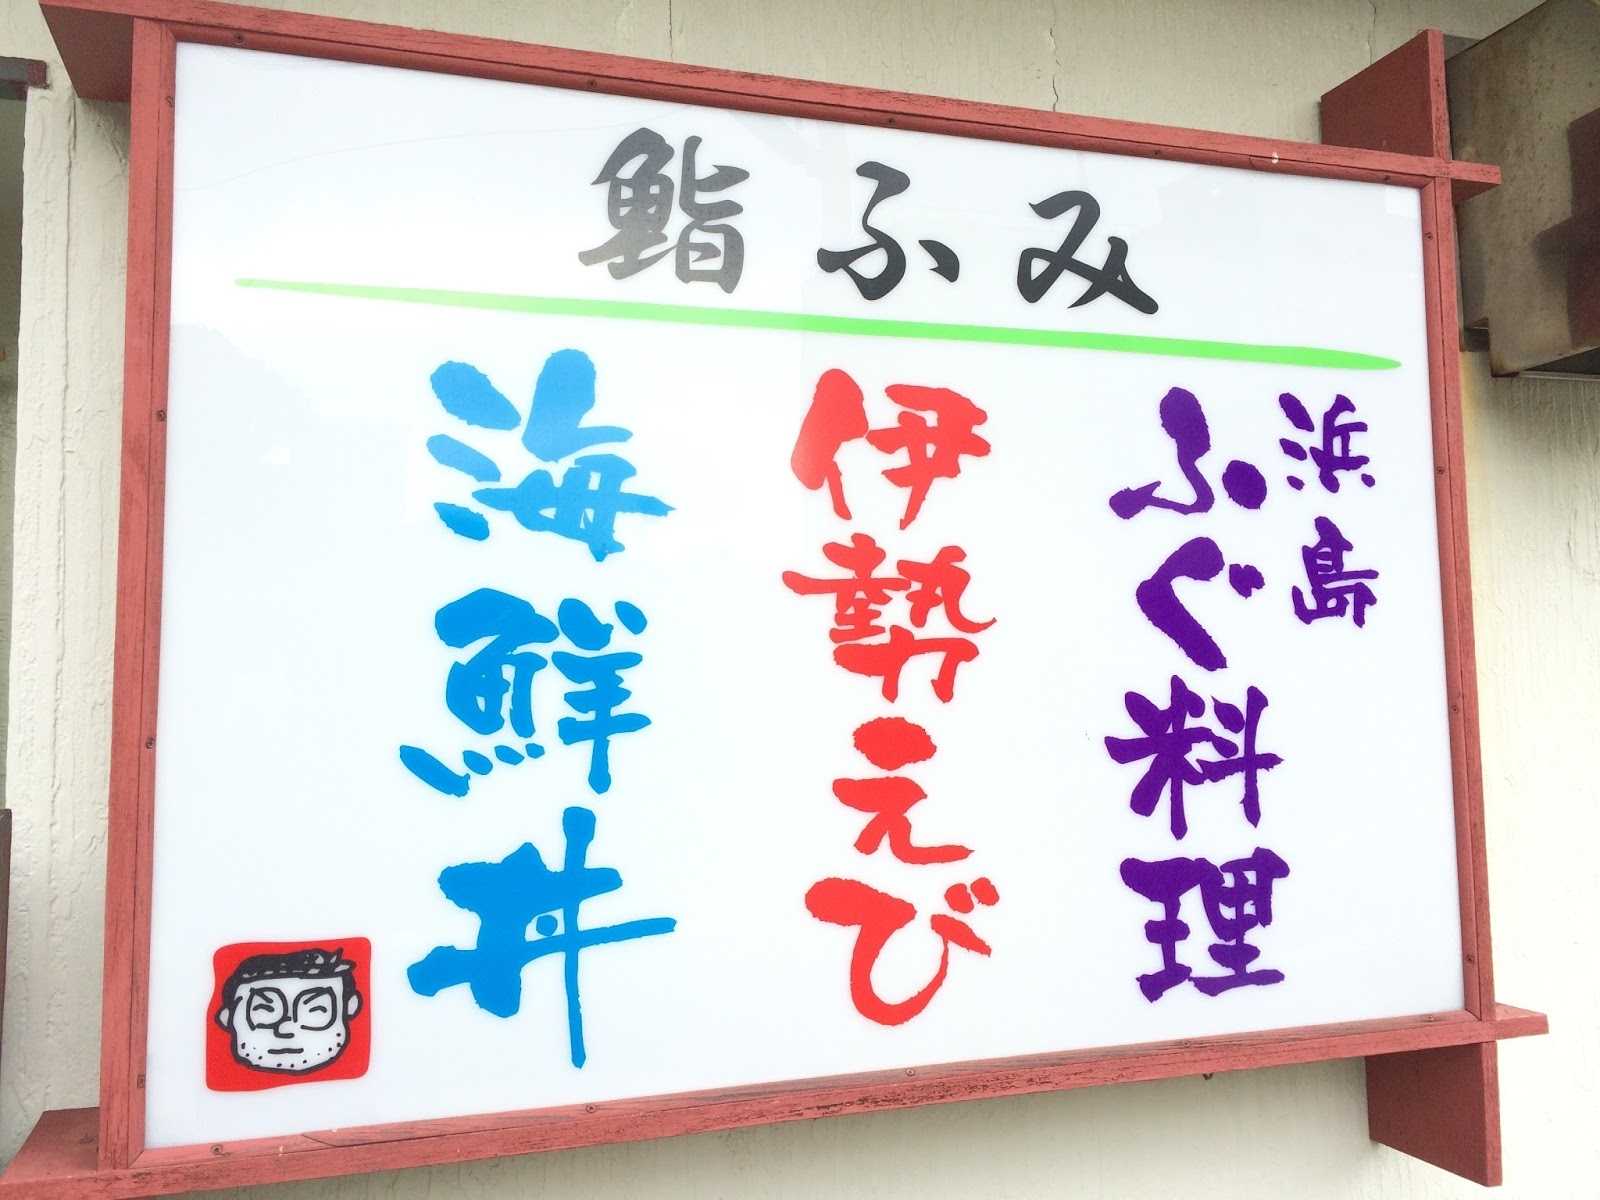 鮨ふみ
浜島
ふぐ料理
伊勢えび
海鮮丼